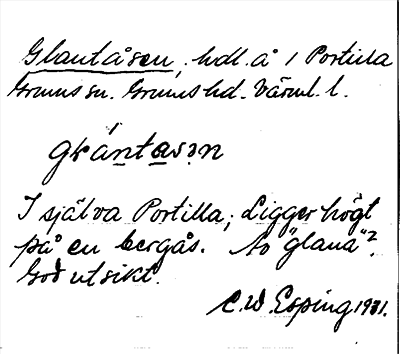 Glantåsen, hdl. å 1 Portilla
Grums sn. Grums hd. Värml. l.
glántasǝn
I själva Portilla; Ligger högt
på en bergås. Av "glana"?
God utsikt.
C.W. Esping 1931.